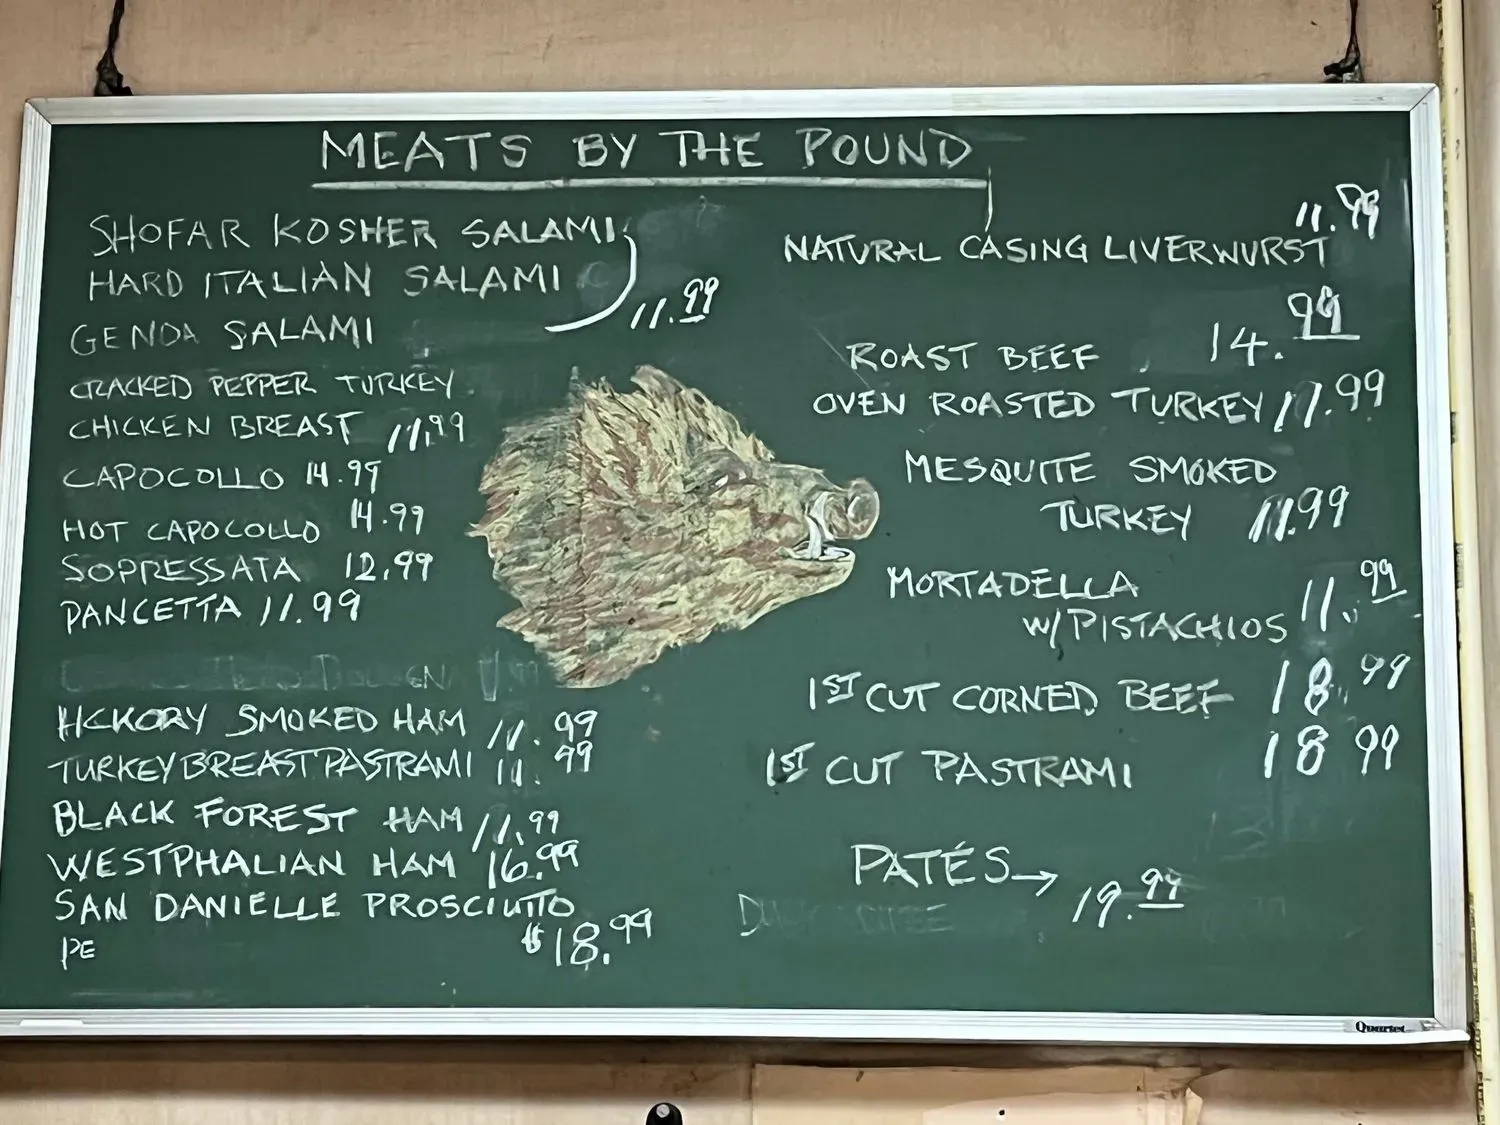 MEATS BY THE POUND
SHOFAR KOSHER SALAMI
HARD ITALIAN SALAMI
GENOA SALAMI
11.99
CRACKED PEPPER TURKEY
CHICKEN BREAST 11.99
CAPOCOLLO 14.99
HOT CAPOCOLLO 14.99
SOPRESSATA 12.99
PANCETTA 11.99
HICKORY SMOKED HAM 11.99
TURKEY BREAST PASTRAMI 11.99
BLACK FOREST HAM 11.99
WESTPHALIAN HAM 16.99
SAN DANIELLE PROSCIUTTO
PE
$18.99
NATURAL CASING LIVERWURST 11.99
ROAST BEEF 14.99
OVEN ROASTED TURKEY 11.99
MESQUITE SMOKED
TURKEY 11.99
MORTADELLA
W/PISTACHIOS 11.99
1ST CUT CORNED BEEF 18.99
1ST CUT PASTRAMI 18 99
PATÉS→ 19.99
Quartet